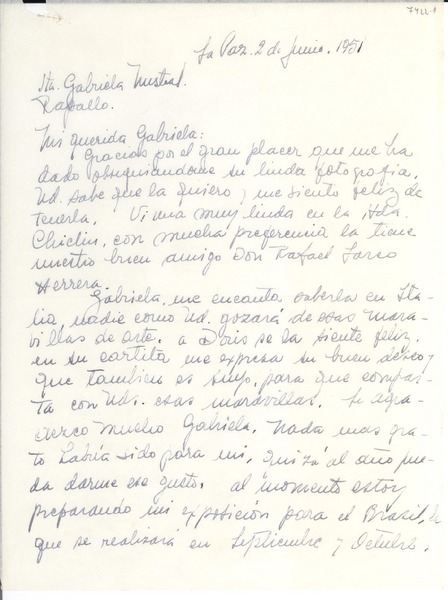 7422-1
La Paz. 2 de Junio. 1951
Sta. Gabriela Mistral.
Rapallo.
Mi querida Gabriela:
Gracias por el gran placer que me ha
dado obsequiandome su linda fotografia.
Ud. sabe que la quiero y me siento feliz de
tenerla. Vi una muy linda en la Hda.
Chiclin, con mucha preferencia la tiene
nuestro buen amigo Don Rafael Larco
Herrera.
Gabriela, me encanta saberla en Ita-
lia nadie como Ud. gozará de esas mara-
villas de arte. a Doris se la siente feliz,
en su cartita me expresa su buen deseo, y
que tambien es suyo, para que compar-
ta con Uds. esas maravillas. Le agra-
dezco mucho Gabriela. Nada mas gra-
to habría sido para mi, quizá al año pue-
da darme ese gusto. al momento estoy
preparando mi exposición para el Brasil, la
que se realizará en Septiembre y Octubre.